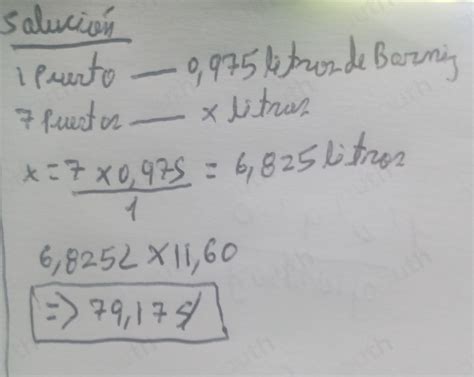 Solución
1 Puerto — 0,975 litros de Barniz
7 Puertos — x litros
x = 7 x 0,975 = 6,825 litros
1
6,825L x 11,60
=> 79,17 s/